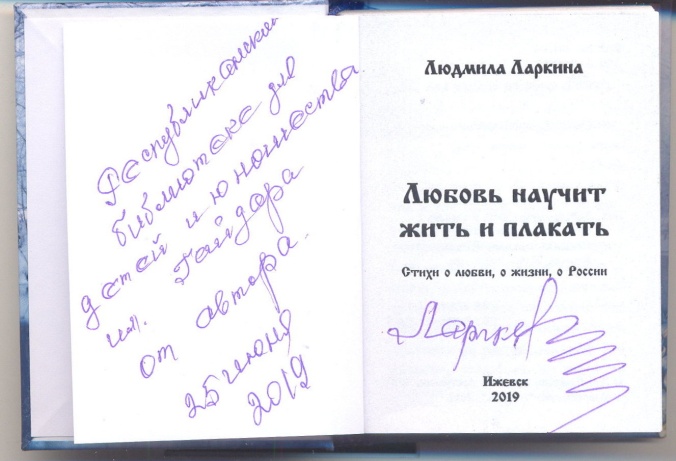 Республиканской
библиотеке для
детей и юношества
им. Гайдара
от автора.
25 июня
2019
Людмила Ларкина
Любовь научит
жить и плакать
Стихи о любви, о жизни, о России
Ижевск
2019